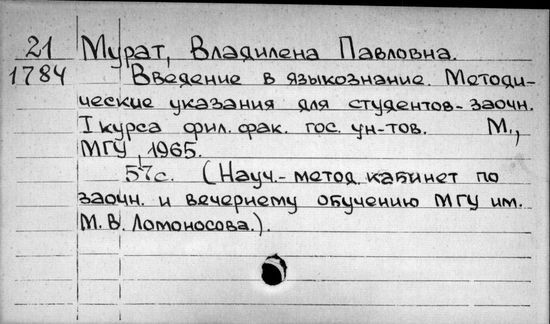 21 Мурат, Владилена Павловна.
1784 Введение в языкознание. Методи-
ческие указания для студентов-заочн.
I курса фил. фак. гос. ун-тов. М.,
МГУ, 1965.
57с. (Науч.-метод. кабинет по
заочн. и вечернему обучению МГУ им.
М.В. Ломоносова.).